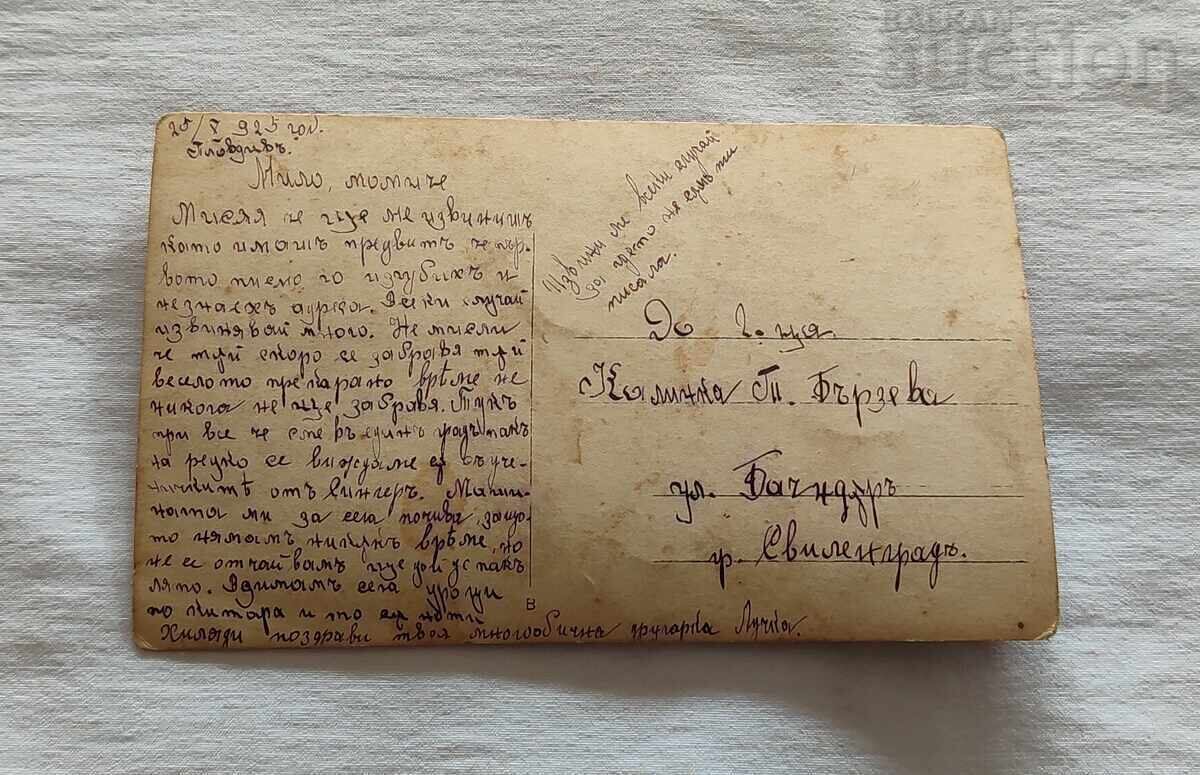 25/V 925 год.
Пловдивъ.
Мило, момиче
Мисля че ще ме извинишъ
като имашъ предвитъ, че пър-
вото писмо го изгубихъ и
незнаехъ адреса. Всеки случай
извинявай много. Не мисли
че тъй скоро се забравя тъй
веселото прекарано врѣме не
никога не ще забравя. Тукъ
при все че сме въ единъ градъ пакъ
на редко се виждаме съ съуче-
ничкитѣ отъ Сингеръ. Маши-
ната ми за сега почива, защо-
то нямамъ никакъ врѣме, но
не се отчайвамъ ще дойде пакъ
лято. Взимамъ сега уроци
по китара и то съ ноти
Хиляди поздрави твоя многообична другарка Лучка.
Извини ме всеки случай
за гдето не съмъ ти
писала.
До Г-ца
Калинка Т. Бързева
ул. Бачндуръ
гр. Свиленградъ.
B
BALKAN
auction